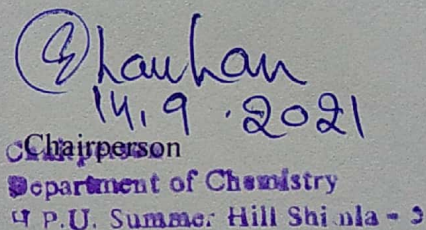 Chauhan
14.9.2021
Chairperson
Department of Chemistry
H P.U. Summer Hill Shimla - 5